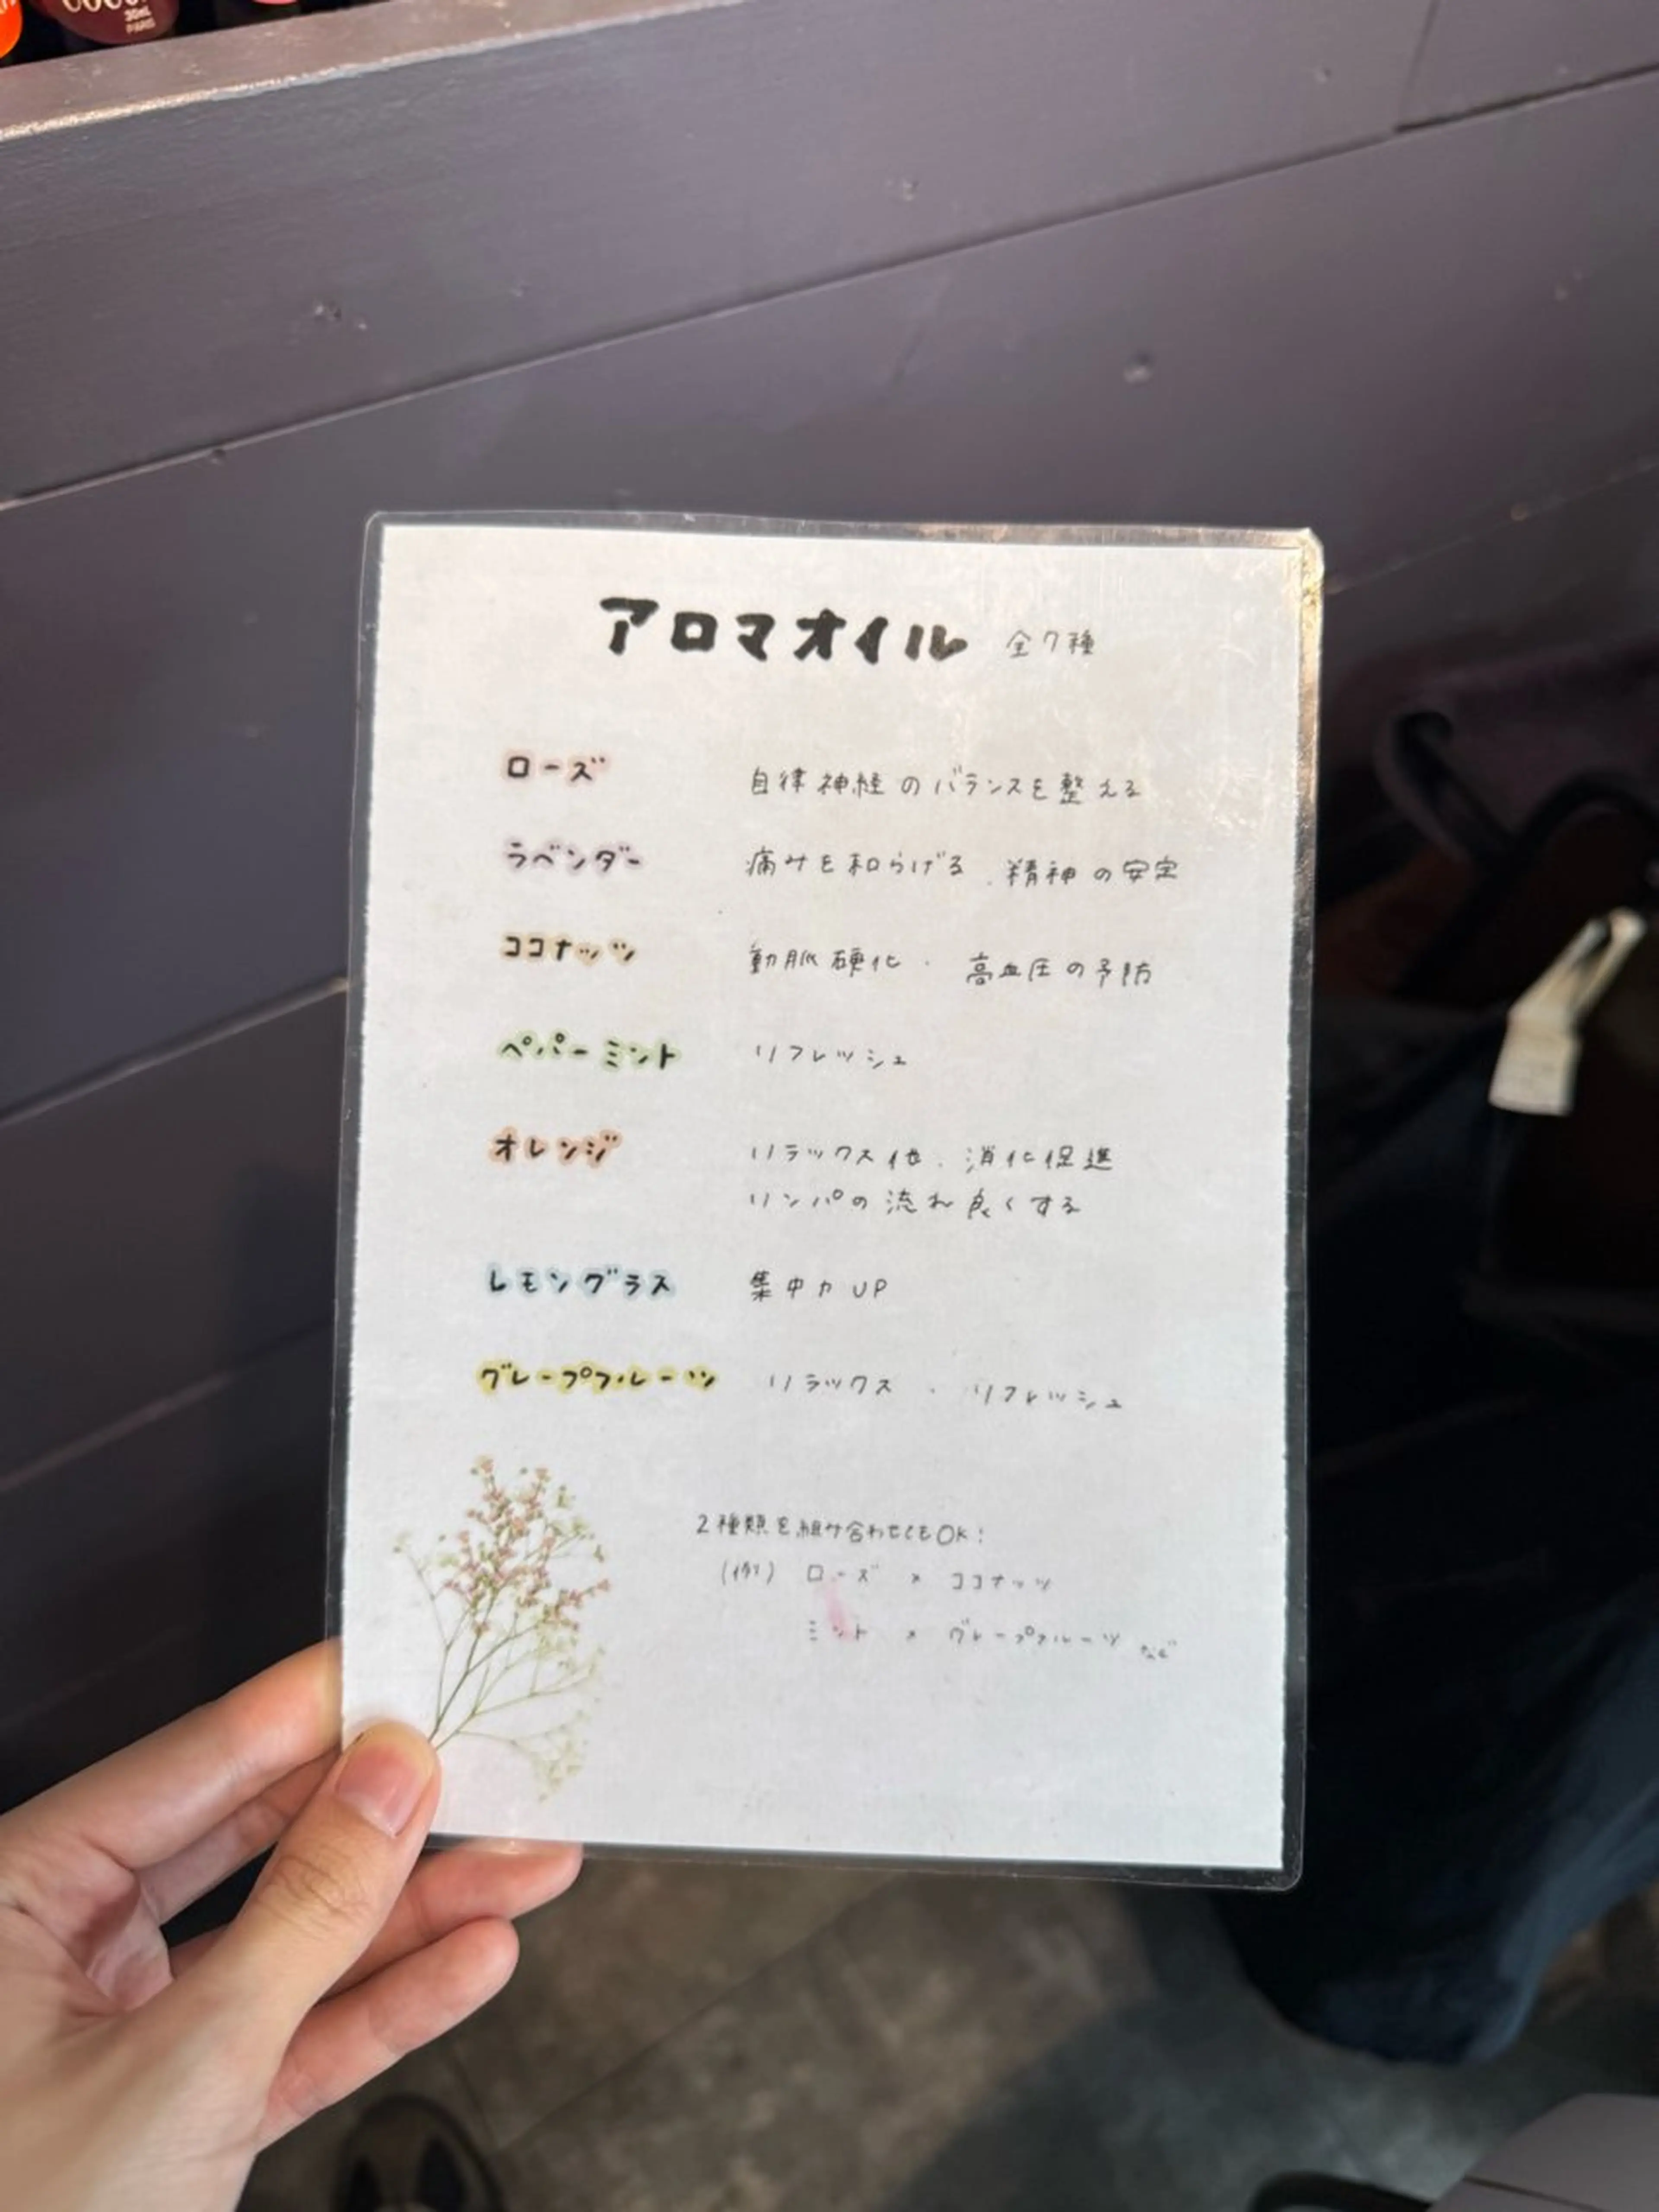 30mL
PARIS
アロマオイル 全7種
ローズ 自律神経のバランスを整える
ラベンダー 痛みを和らげる、精神の安定
ココナッツ 動脈硬化・高血圧の予防
ペパーミント リフレッシュ
オレンジ リラックス他、消化促進
リンパの流れ良くする
レモングラス 集中力UP
グレープフルーツ リラックス・リフレッシュ
2種類を組み合わせてもOK!
(例) ローズ × ココナッツ
ミント × グレープフルーツ など